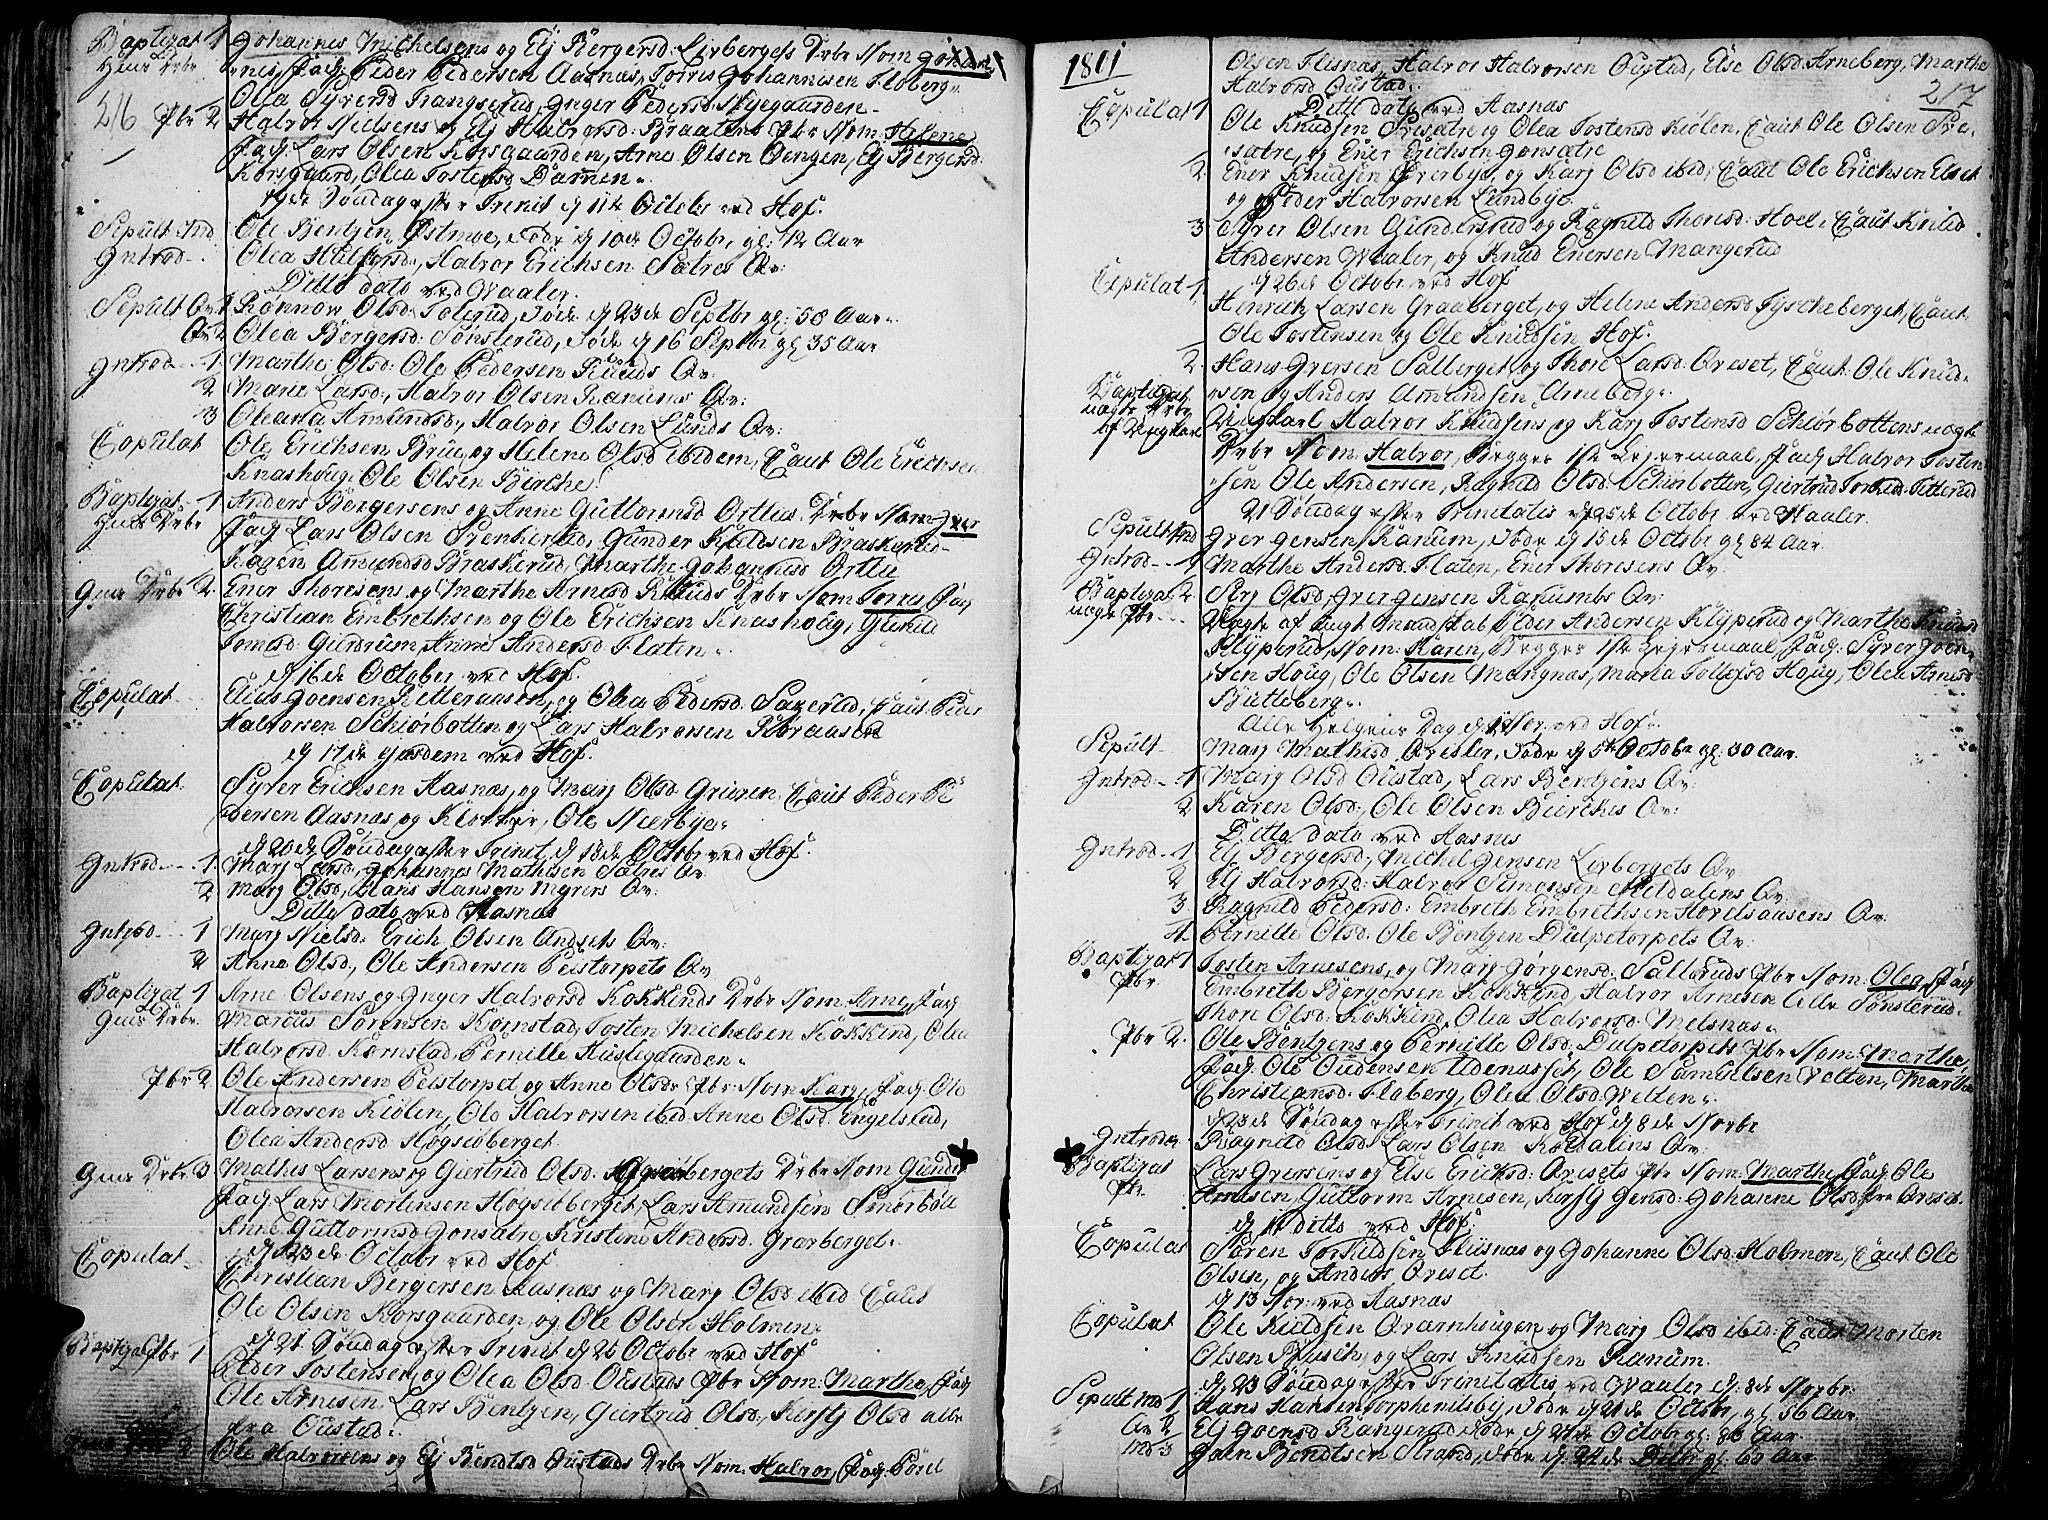 Baptizat 1 Johannes Michelsens og Elj Bergersd: Lirbergets Drbr Nom: Johan¬
hiems Drbr nis, Fad: Peder Pedersen Aasnæs, Torris Johannesen Floberg
Olea Syversd Frangserud, Inger Pedersd Nyegaarden
216 Pbr 2 Halvor Nielsens og Elj Halvorsd: Braatens Pbr Nom: Helene
Fad: Lars Olsen Korsgaarden, Arne Olsen Oengen, Elj Bergersd:
Korsgaard, Olea Tostensd Dammen
19de Søndag efter Trinit d 11te Octobr ved Hof.
Sepult Md Ole Bentzen Østmoe, døde d 10de Octobr, gl: 72 Aar
Introd Olea Halvorsd:, Halvor Erichsen Sætres Qv:
Ditto dato ved Waaler.
Sepult Qv 1 Rønnov Olsd: Tolerud, døde d 23de Septbr gl: 58 Aar
Qv 2 Olea Bergersd: Sønsterud, døde d 16 Septbr gl 35 Aar
Introd 1 Marthe Olsd: Ole Pedersen Ruuds Qv:
2 Marie Larsd:, Halvor Olsen Ranums Qv:
3 Oleana Amundsd:, Halvor Olsen Lunds Qv:
Copulat Ole Erichsen Brue, og Helene Olsd ibidem, Caut Ole Erichsen
Knashoug, Ole Olsen Birche
Baptizat 1 Anders Bergersens og Anne Guttormsd Orttue Drbr Nom: Iver
Fad Lars Olsen Svenkerud, Gunder Knudsen Braskerud
Karen Amundsd Braskerud, Marthe Johannisd Orttue
Drbr 2 Ener Thoresens og Marthe Arnesd Ruuds Drbr Nom Torris, Fad
Christian Embrethsen og Ole Erichsen Knashoug, Gunild
Tomesd: Gudrum, Anne Andersd Flaten
d 16de October ved Hof
Copulat Elias Joensen Retteraasen, og Olea Pedersd: Sagerud, Caut: Peder
Halvorsen Schiørbotten og Lars Halvorsen Robraasen
d 17de ejusdem ved Hof.
Copulat Syver Erichsen Aasnæs, og Marj Olsd Grinen, Caut Peder Pe
dersen Aasnæs og Klokker, Ole Nierbye
d 20de Søndag efter Trinit d 18de Octobr ved Hof
Introd 1 Marj Larsd, Johannes Mathisen Sætres Qv:
2 Marj Olsd, Hans Hansen Myrers Qv:
Ditto dato ved Aasnæs
Introd 1 Marj Nielsd: Erich Olsen Andsets Qv:
2 Anne Olsd., Ole Andersen Peistorpets Qv
Baptizat 1 Arne Olsens og Inger Halvorsd Kokkinds Drbr Nom: Arne, Fad
Marcus Sørensen Kornstad, Tosten Michelsen Kokkind, Olea
Halvorsd Kornstad, Pernille Hustegaarden
Pbr 2 Ole Andersen Peistorpet og Anne Olsds Pbr: Nom: Karj, Fad Ole
Halvorsen Kiølen, Ole Halvorsen ibid: Anne Olsd: Engelstad,
Olea Andersd Høgseberget
Drbr 3 Mathis Larsens og Giertrud Olsd: Høgsebergets Drbr Nom Gunder
Fad Lars Mortensen Høgseberget, Lars Amundsen Smørbøll
Anne Guttormsd Gonsætre, Kristene Andersd. Graberget
d 23de Octobr ved Hof
Copulat Christian Bergersen Aasnæs og Marj Olsd: ibid Caut
Ole Olsen Korsgaarden og Ole Olsen Holmen
d 21 Søndag efter Trinit d 25 Octobr ved Hof
Baptizat Pbr 1 Peder Tostensen og Olea Olsd: Oustads Pbr Nom: Marthe, Fad
Ole Arnesen, Lars Bentzen, Giertrud Olsd, Kirstj Olsd alle
fra Oustad.
2 Ole Halvorsens og Elj Bendtsd Oustads Drbr Nom: Halvor, Fad: Povel
1801
217
Olsen Flisnæs, Halvor Halvorsen Oustad, Else Olsd: Arneberg, Marthe
Halvorsd Oustad.
Ditto dato ved Aasnæs
Copulat 1 Ole Knudsen Svesætre og Olea Tostensd Kiølen, Caut Ole Olsen Sve¬
sætre, og Ener Erichsen Gonsætre
2 Ener Knudsen Sverbye, og Karj Olsd ibid, Caut Ole Erichsen Elset
og Peder Halvorsen Lundbye
3 Syver Olsen Gundersrud og Ragnild Thoresd: Hoel, Caut Knud
Andersen Waaler, og Knud Enersen Mangerud
d 26de Octobr ved Hof
Copulat 1 Henrich Larsen Graaberget, og Helene Andersd Tyscheberget, Caut
Ole Tostensen og Ole Knudsen Hof.
2 Hans Iversen Salberget, og Thore Larsd: Qveset, Caut: Ole Knud¬
sen og Anders Amundsen Arneberg
Baptizat uægte Drbr af Ungkarl Ungkarl Halvor Knudsens og Karj Tostensd Schiørbottens uægte
Drbr Nom: Halvor, Begges 1ste Leiermaal, Fad Halvor Tosten
sen Ole Andersen, Ragnild Olsd: Schiørbotten, Giertrud Tostensd Titterud
21 Søndag efter Trinitatis d 25de Octobr ved Waaler.
Sepult Md Iver Jensen Ranum, døde d 15de Octobr gl 84 Aar
Introd 1 Marthe Andersd: Flaten, Ener Thoresens Qv:
2 Sirj Olsd, Iver Jensen Ranumbs Qv:
Baptizat uægte Pbr Uægte af Ungt Mandskab Peder Andersen Klyperud og Marthe Knudsd
Klyperud, Nom: Karen, Begges 1ste Leiermaal, Fad: Syver Joen
sen Houg, Ole Olsen Mangnæs, Maria Tollefsd Houg, Olea Arnesd
Butteberg
Alle Helgens Dag d 1 Nov: ved Hof
Sepult Marj Mathisd Qvesler, døde d 5te Octobr gl 30 Aar
Introd 1 Marj Olsd Oustad, Lars Bentzens Qv:
2 Karen Olsd:, Ole Olsen Bierckes Qv:
Ditto dato ved Aasnes
Introd 1 Elj Bergersd:, Michel Jensen Lirbergets Qv:
2 Elj Halvorsd: Halvor Simonsen Meldalens Qv:
3 Ragnild Pedersd: Embreth Embrethsen Hovelsaasens Qv:
4 Pernille Olsd: Ole Bentzen Dulpetorpets Qv:
Baptizat 1 Pbr Tosten Arnesens, og Marj Jørgensd: Sætteruds Pbr Nom: Olea, Fad
Embreth Bergersen Kokkind, Halvor Arnesen Lille Sønsterud
Thore Olsd: Kokkind, Olea Halvorsd: Melsnæs
Pbr 2 Ole Bentzens og Pernille Olsd: Dulpetorpets Pbr Nom: Marthe,
Fad: Ole Oudensen Udenaasen, Ole Samuelsen Velten, Marthe
Christiansd: Floberg, Olea Olsd: Welten
d 23de Søndag efter Trinit ved Hof d 8de Novbr
Introd Ragnild Olsd: Lars Olsen Koldalens Qv:
Baptizat Pbr Lars Iversens og Else Erichsd: Qvesets Pbr Nom: Marthe, Fad: Ole
Arnesen, Guttorm Arnesen, Kirstj Jensd: Johanne Olsd, fra Qveset
d 11 Ditto ved Hof
Copulat Søren Torkildsen Fliisnæs og Johanne Olsd: Holmen, Caut Ole
Olsen, og Anders Qveset.
d 13 Nov: ved Aasnæs
Copulat Ole Kieldsen Qvarnhougen og Marj Olsd ibid: Caut Morten
Olsen Busch, og Lars Knudsen Ranum.
d 23 Søndag efter Trinitatis ved Waaler d: 8de Novbr
Sepult Md 1 Hans Hansen Torphenilsby, døde d 21de Octobr, gl 56 Aar
Qv 2 Elj Joensd Rangerud døde d 27de Octobr gl: 86 Aar.
Md 3 Joen Bendtsen Strand, døde d 24de Ditto gl: 60 Aar